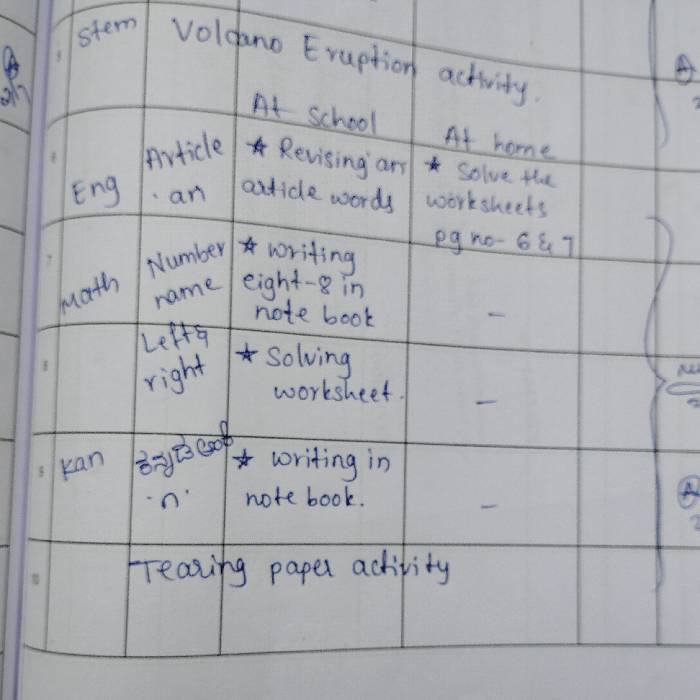 Stem Volcano Eruption activity.
At school At home
Eng Article an ★ Revising an article words ★ Solve the worksheets pg no- 6 & 7
Math Number name ★ writing eight-8 in note book -
Left & right ★ Solving worksheet. -
Kan ★ writing in note book. -
Tearing paper activity